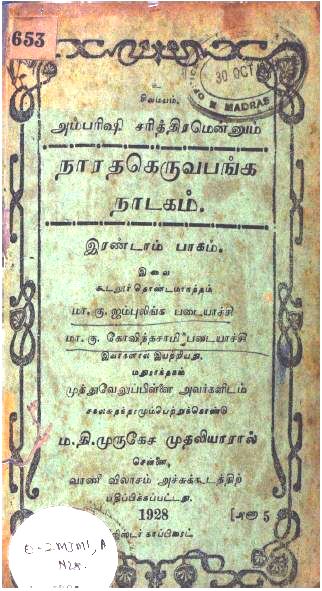 653
30 OCT
MADRAS
உ
சிவமயம்.
அம்பரிஷி சரித்திரமென்னும்
நாரதகெருவபங்க
நாடகம்.
இரண்டாம் பாகம்.
இவை
கூடலூர் தொண்டமாநத்தம்
மா. கு. ஐம்புலிங்க படையாச்சி
மா. கு. கோவிந்தசாமி படையாச்சி
இவர்களால் இயற்றியது.
மதுராந்தகம்
முத்துவேலுப்பிள்ளை அவர்களிடம்
சகலசுதந்தரமும்பெற்றுக்கொண்டு
ம. தி. முருகேச முதலியாரால்
சென்னை,
வாணீ விலாசம் அச்சுக்கூடத்திற்
பதிப்பிக்கப்பட்டது.
1928
ரிஜிஸ்டர் காப்பிரைட்